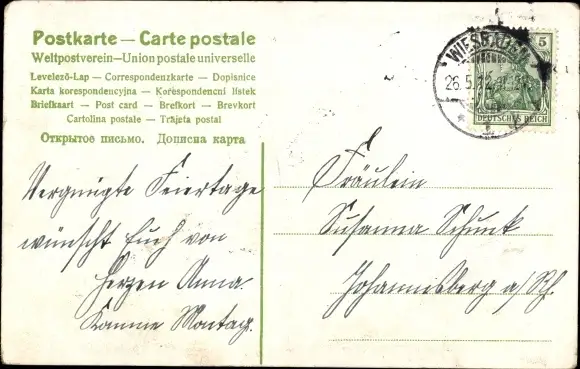 Postkarte — Carte postale
Weltpostverein — Union postale universelle
Levelező-Lap — Correspondenzkarte — Dopisnice
Karta korespondencyjna — Korespondenční lístek
Briefkaart — Post card — Brefkort — Brevkort
Cartolina postale — Tražeta postal
Открытое письмо. Дописна карта
Vergnügte Feiertage
wünscht Euch von
Herzen Anna.
Komme Montag.
WIESBADEN
26.5.12
5
DEUTSCHES REICH
Fräulein
Susanna Schunk
Johannisberg a/Rh.